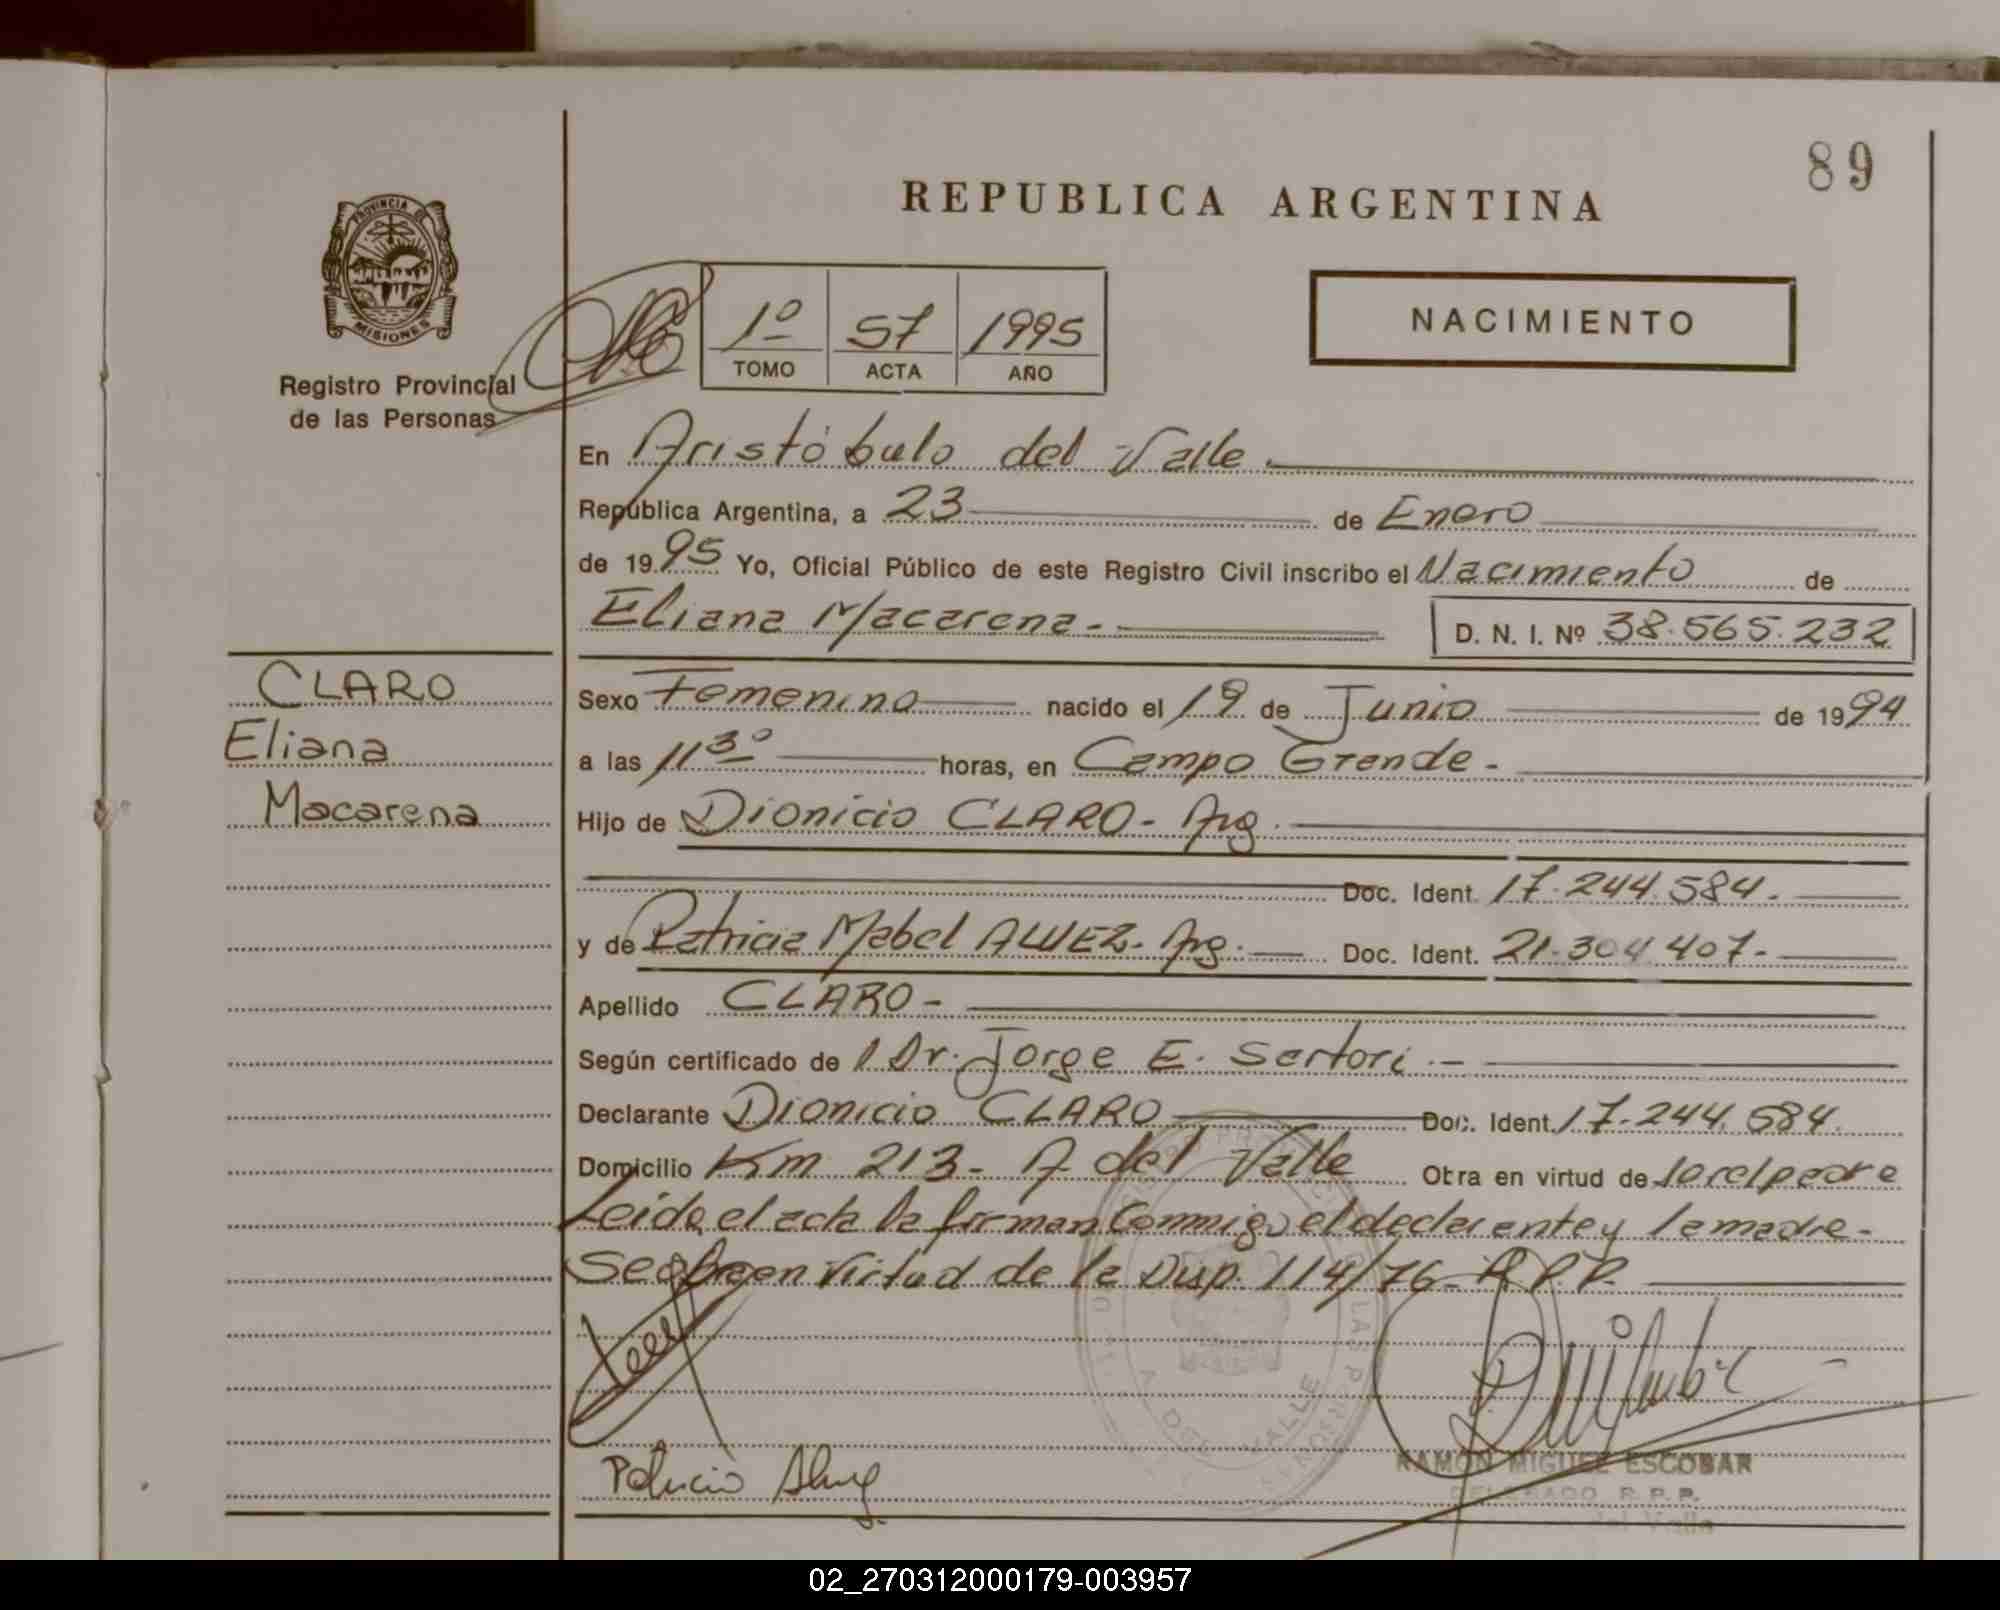 89
REPUBLICA ARGENTINA
PROVINCIA DE
MISIONES
Registro Provincial
de las Personas
1º 57 1995
TOMO ACTA AÑO
NACIMIENTO
En Aristóbulo del Valle.
República Argentina, a 23 de Enero
de 1995 Yo, Oficial Público de este Registro Civil inscribo el Nacimiento de
Eliana Macarena- D. N. I. Nº 38.565.232
CLARO
Eliana
Macarena
Sexo Femenino nacido el 19 de Junio de 1994
a las 11 30 horas, en Campo Grande-
Hijo de Dionicio CLARO- Arg.
Doc. Ident. 17.244.584.
y de Patricia Mabel ALVEZ- Arg. Doc. Ident. 21.304.407-
Apellido CLARO-
Según certificado de l Dr. Jorge E. Sartori.-
Declarante Dionicio CLARO Doc. Ident. 17.244.584.
Domicilio Km 213- A. del Valle Otra en virtud de ser el padre
Leida el acta la firman Conmigo el declarante y la madre-
Se labra en virtud de la Disp. 114/76- R.P.P.
A. DEL VALLE
Patricia Alvez
RAMON MIGUEL ESCOBAR
DELEGADO R.P.P.
del Valle
02_270312000179-003957